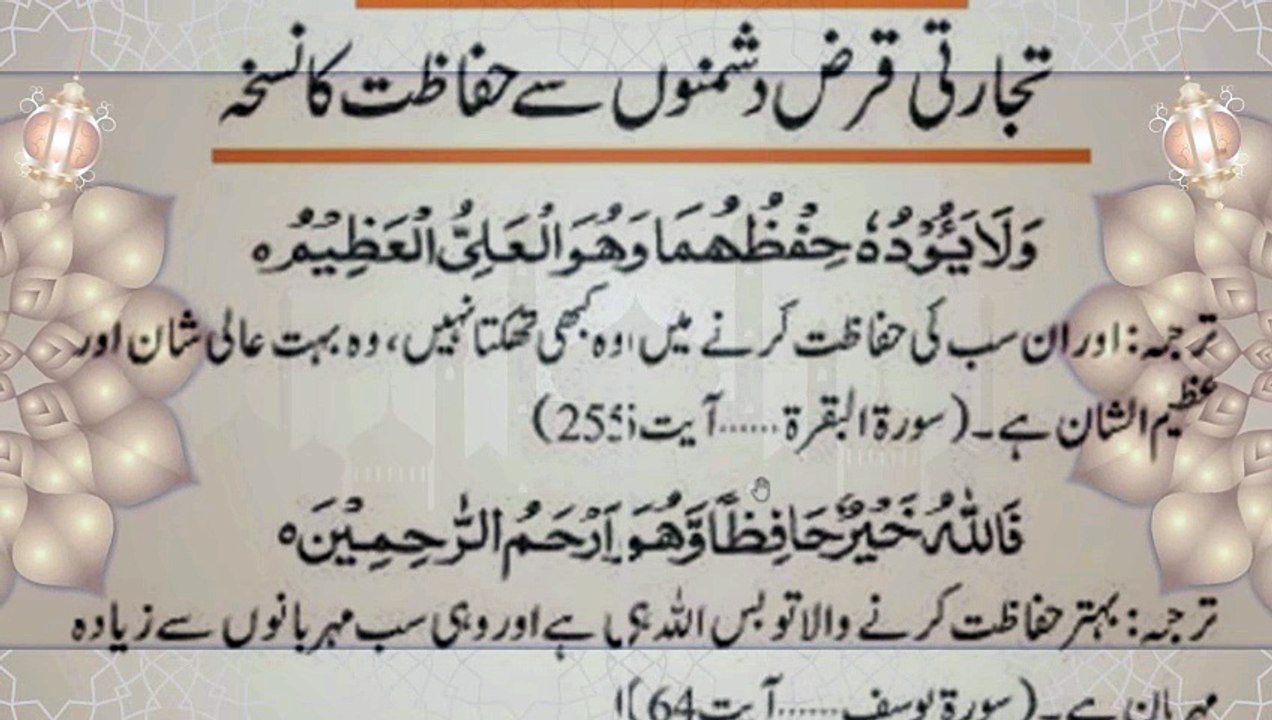 تجارتی قرض دشمنوں سے حفاظت کا نسخہ
وَلَا يَـُٔوۡدُهٗ حِفۡظُهُمَا وَهُوَ الۡعَلِىُّ الۡعَظِيۡمُ ه
ترجمہ: اور ان سب کی حفاظت کرنے میں وہ کبھی تھکتا نہیں، وہ بہت عالی شان اور
عظیم الشان ہے۔ (سورۃ البقرۃ......آیت 255)
فَاللّٰهُ خَيۡرٌ حَافِظًا وَّهُوَ اَرۡحَمُ الرّٰحِمِيۡنَ ه
ترجمہ: بہتر حفاظت کرنے والا تو بس اللہ ہی ہے اور وہی سب مہربانوں سے زیادہ
مہربان ہے۔ (سورۃ یوسف......آیت 64)